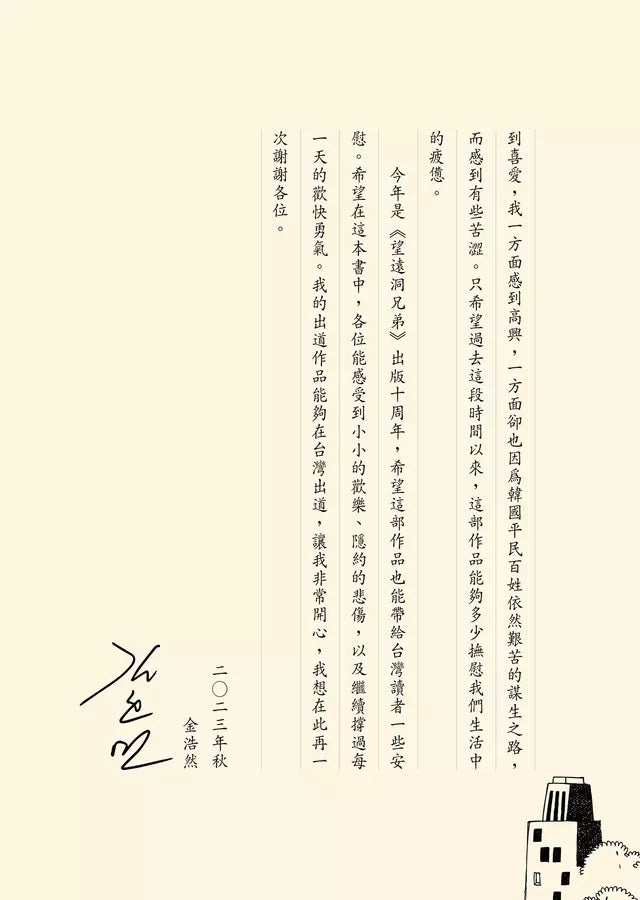 到喜愛，我一方面感到高興，一方面卻也因為韓國平民百姓依然艱苦的謀生之路，
而感到有些苦澀。只希望過去這段時間以來，這部作品能夠多少撫慰我們生活中
的疲憊。
今年是《望遠洞兄弟》出版十周年，希望這部作品也能帶給台灣讀者一些安
慰。希望在這本書中，各位能感受到小小的歡樂、隱約的悲傷，以及繼續撐過每
一天的歡快勇氣。我的出道作品能夠在台灣出道，讓我非常開心，我想在此再一
次謝謝各位。
二〇二三年秋
金浩然